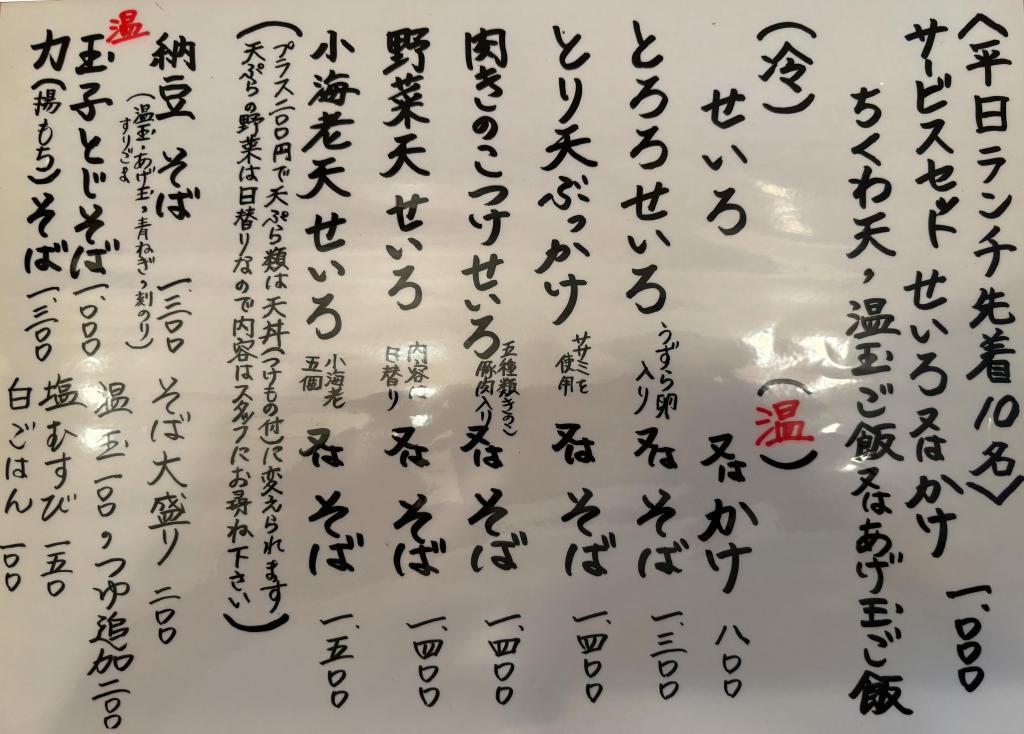 〈平日ランチ先着10名〉
サービスセット せいろ又はかけ 一、〇〇〇
ちくわ天,温玉ご飯又はあげ玉ご飯
(冷) (温)
せいろ 又は かけ 八〇〇
とろろせいろ うずら卵入り 又は そば 一、三〇〇
とり天ぶっかけ ササミを使用 又は そば 一、四〇〇
肉きのこつけせいろ 五種類きのこ豚肉入り 又は そば 一、四〇〇
野菜天せいろ 内容は日替り 又は そば 一、四〇〇
小海老天せいろ 小海老五個 又は そば 一、五〇〇
(プラス二〇〇円で天ぷら類は天丼(つけもの付)に変えられます
天ぷらの野菜は日替りなので内容はスタッフにお尋ね下さい)
納豆そば 一、三〇〇
(温玉,あげ玉,青ねぎ,刻のり)
すりごま
温
玉子とじそば 一、〇〇〇
力(揚もち)そば 一、三〇〇
そば大盛り 二〇〇
温玉一〇〇,つゆ追加二〇〇
塩むすび 一五〇
白ごはん 一〇〇